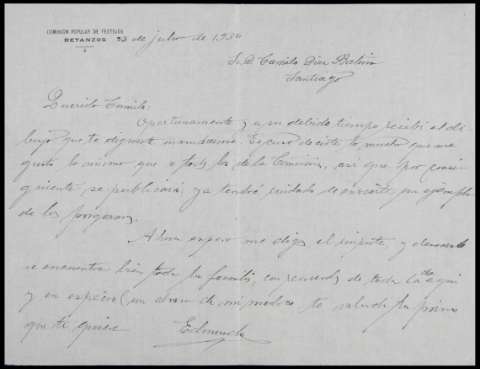 COMISIÓN POPULAR DE FESTEJOS
BETANZOS 23 de julio de 1930
S. D. Camilo Díaz Baliño
Santiago
Querido Camilo:
Oportunamente y a su debido tiempo recibí el di-
bujo que te dignaste mandarme. Escuso decirte lo mucho que me
gustó lo mismo que a todos los de la Comisión, así que por consi-
guiente se publicará; ya tendré cuidado de enviarte un ejemplar
de los programas.
Ahora espero me digas el importe, y deseando
se encuentre bien toda la familia, con recuerdos de toda la de aquí
y en especial un abrazo de mi madre te saluda tu primo
que te quiere Edmundo